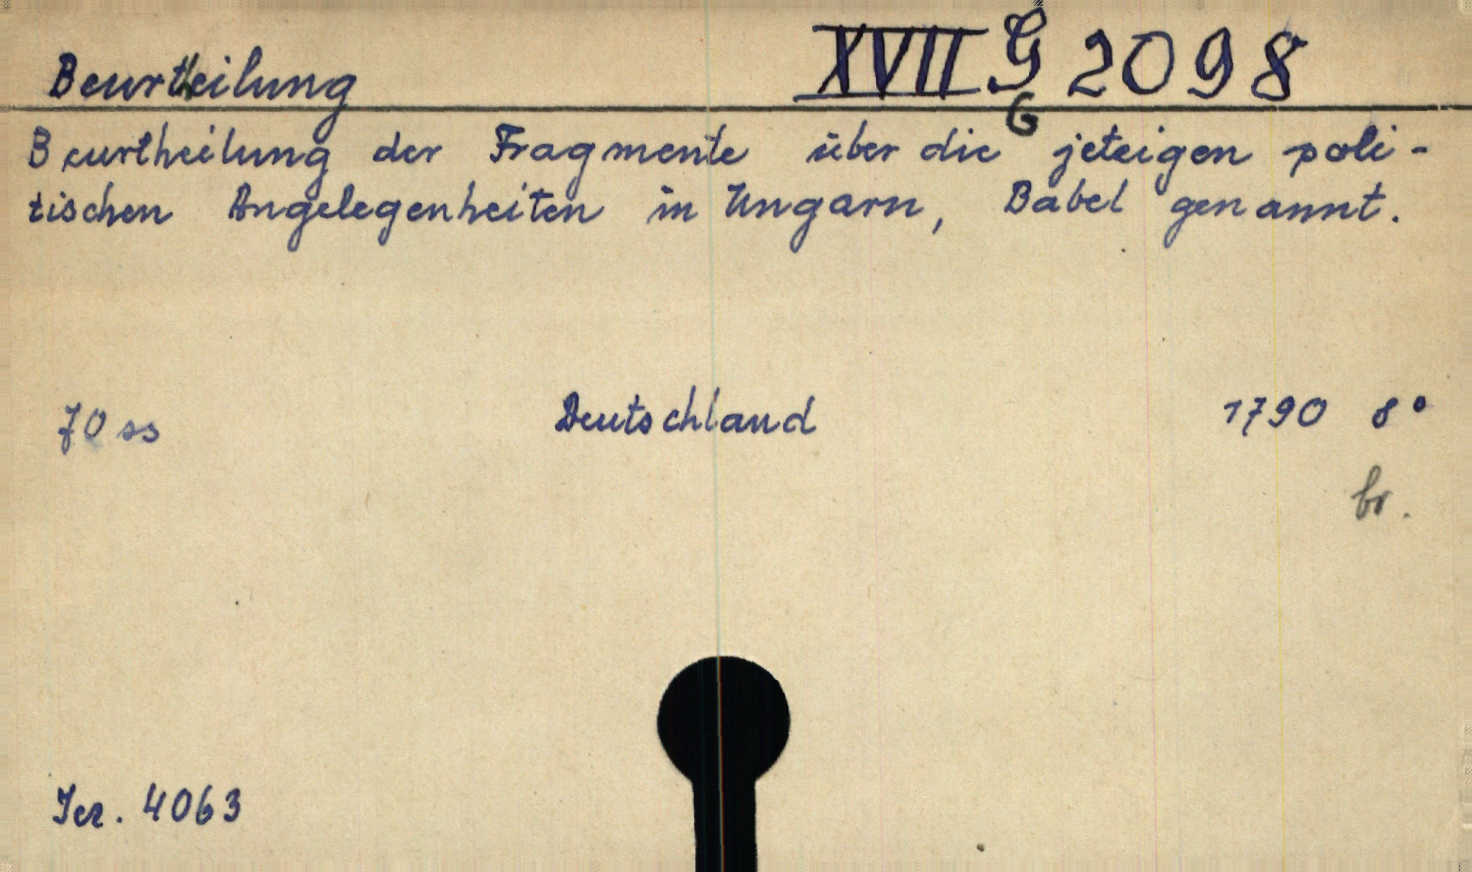 Beurtheilung XVII G 2098
G
Beurtheilung der Fragmente über die jeteigen poli-
tischen Angelegenheiten in Ungarn, Babel genannt.
70 ss Deutschland 1790 8°
br.
4063